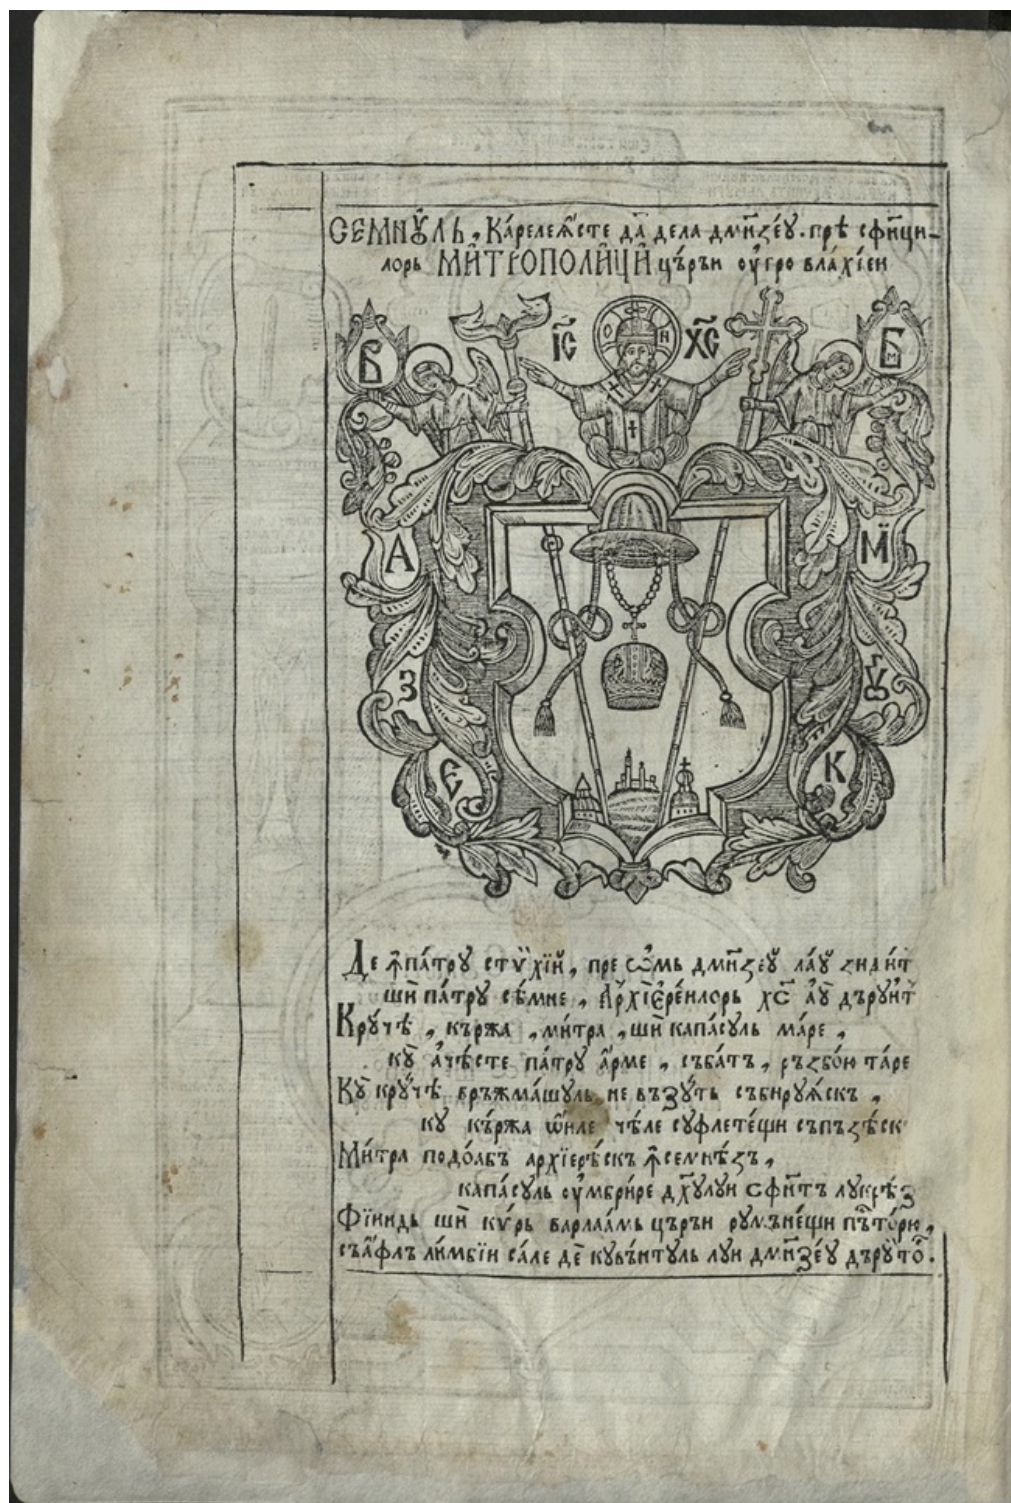 СЕМНꙊЛЬ, Кáрелеѧ҆́сте да̑ дела дм҃неꙁéꙋ. прѣ сфн҃ци-
лорь МИТРОПОЛИЦИ цъ́ръи ᲂу҆́гро влáхїеи
Б
І҃С
Ѻ
Н
Х҃С
Б
М
А
М
З
Ꙋ
Є
К
Де ꙟ҆пáтрꙋ стѷхїй, пре ѡ҆́мь дмн҃ꙁеꙋ̆ лáꙋ̆ ꙁидúт
ши пáтрꙋ сéмне, А҆рхїерéилорь хс҃ аꙋ̆ дърꙋи́т
Крꙋ́чѣ, кържа, ми́тра, ши капáсꙋль мáре,
кꙋ а҆чѣ́сте пáтрꙋ а҆́рме, събáтъ, ръꙁбóю тáре
Кꙋ крꙋ́чѣ връжмáшꙋль, не въꙁꙋ́ть събирꙋѧ́скъ,
кꙋ къ́ржа ѡ҆́иле чѣ́ле сꙋфлетéщи съпъꙁѣ́ск
Ми́тра подóабъ архїерѣ́скъ ꙟ҆семнѣ́ꙁъ,
капáсꙋль ᲂу҆мбри́ре дх҃ꙋлꙋи сфн҃тъ лꙋкрѣ́ꙁ
Фїиндь ши кѵ́рь варлаáмь цъ́ръи рꙋмънéщи пъстóрю,
съа҆́флъ ли́мбїи сáле де кꙋвъ́нтꙋль лꙋи дмн҃ꙁéꙋ дърꙋитó.